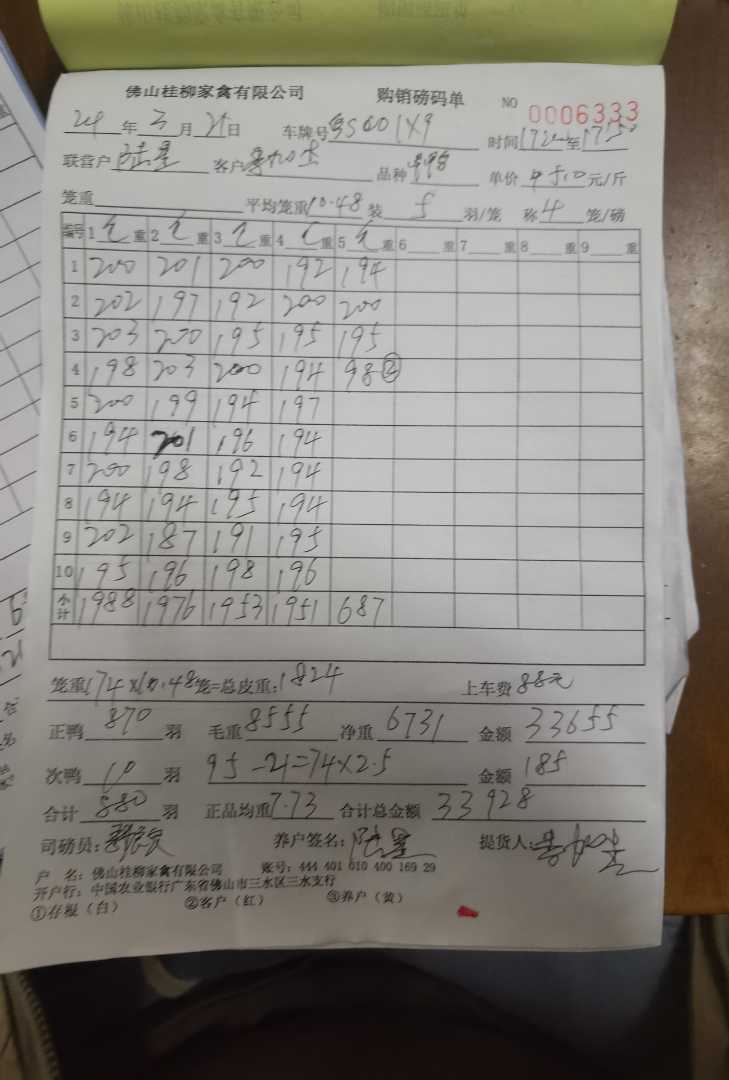 佛山桂柳家禽有限公司 购销磅码单 NO 0006333
24 年 3 月 21 日 车牌号 时间 至
联营户 陆星 客户 品种 单价 元/斤
笼重 平均笼重 10.48 装 5 羽/笼 称 4 笼/磅
编号 1 毛 重 2 毛 重 3 毛 重 4 毛 重 5 毛 重 6 重 7 重 8 重 9 重
1 200 201 200 192 194
2 202 197 192 200 200
3 203 200 195 195 195
4 198 203 200 194 98②
5 200 199 194 197
6 194 201 196 194
7 200 198 192 194
8 194 194 195 194
9 202 187 191 195
10 195 196 198 196
小计 1988 1976 1953 1951 687
笼重 174×10.48 笼=总皮重: 1824 上车费 88元
正鸭 870 羽 毛重 8555 净重 6731 金额 33655
次鸭 10 羽 95-21=74×2.5 金额 185
合计 880 羽 正品均重 7.73 合计总金额 33928
司磅员: 养户签名: 陆星 提货人:
户 名: 佛山桂柳家禽有限公司 账号: 444 401 010 400 169 29
开户行: 中国农业银行广东省佛山市三水区三水支行
①存根（白） ②客户（红） ③养户（黄）